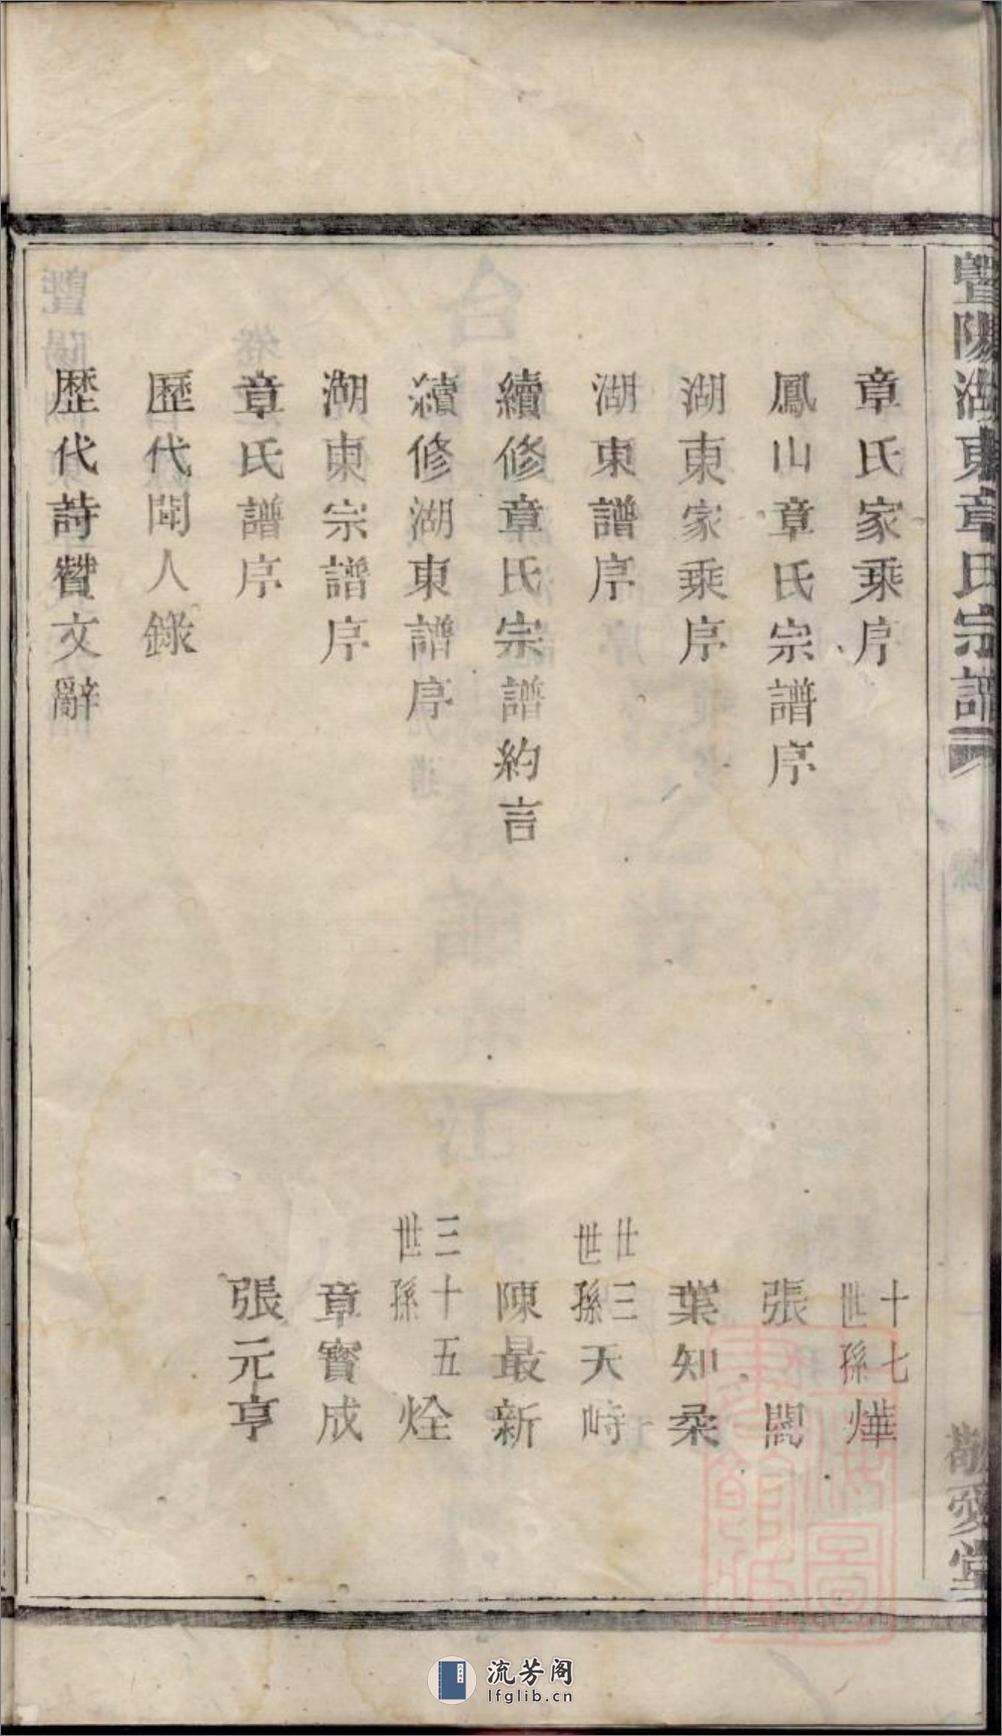 暨陽湖東章氏宗譜
敬愛堂
章氏家乘序 十七世孫燁
鳳山章氏宗譜序 張閣
湖東家乘序 葉知
湖東譜序 廿三世孫天峙
續修章氏宗譜約言 陳最新
續修湖東譜序 三十五世孫烇
湖東宗譜序 章寶成
章氏譜序 張元亨
歷代聞人錄
歷代詩贊文辭
流芳阁
lfglib.cn